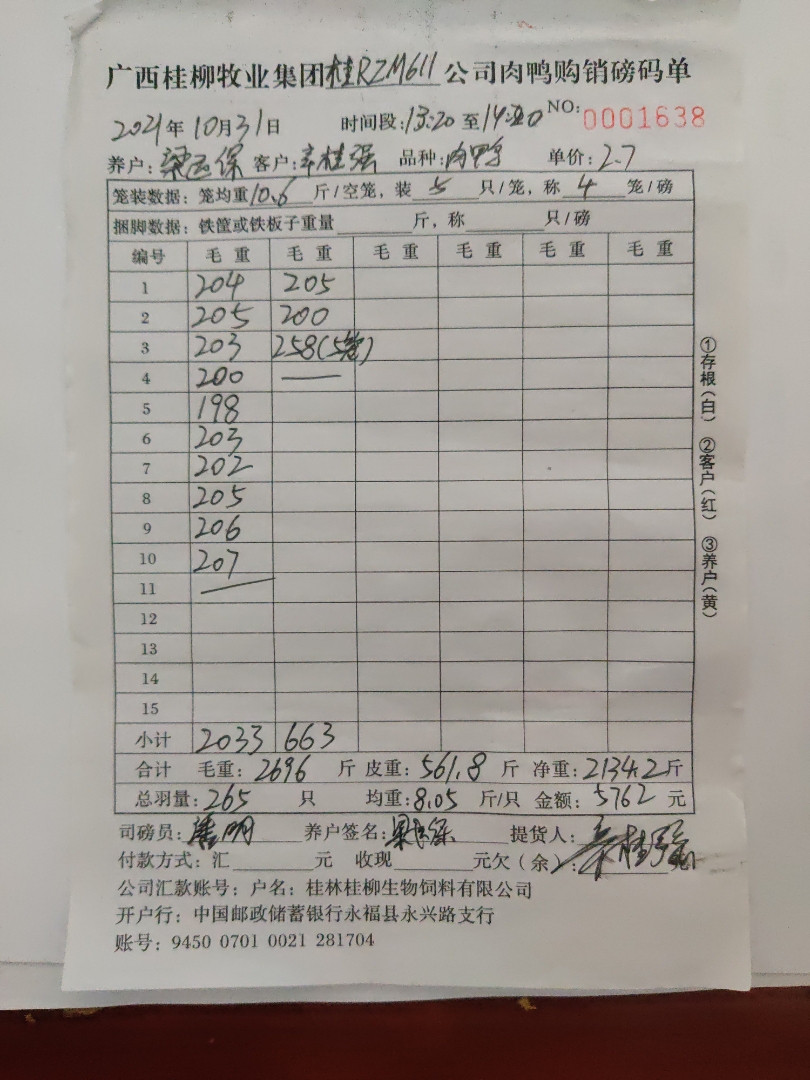 广西桂柳牧业集团桂RZM611公司肉鸭购销磅码单
2021年10月31日 时间段:13:20至14:20 NO:0001638
养户: 保 客户:辛桂强 品种:肉鸭 单价:2.7
笼装数据:笼均重10.6斤/空笼,装5只/笼,称4笼/磅
捆脚数据:铁筐或铁板子重量 斤,称 只/磅
编号 毛重 毛重 毛重 毛重 毛重 毛重
1 204 205
2 205 200
3 203 258(5笼)
4 200 —
5 198
6 203
7 202
8 205
9 206
10 207
11 —
12
13
14
15
小计 2033 663
合计 毛重:2696斤 皮重:561.8斤 净重:2134.2斤
总羽量:265只 均重:8.05斤/只 金额:5762元
司磅员: 明 养户签名: 保 提货人:辛桂强
付款方式:汇 元 收现 元欠(余): 元
公司汇款账号:户名:桂林桂柳生物饲料有限公司
开户行:中国邮政储蓄银行永福县永兴路支行
账号:9450 0701 0021 281704
①存根(白) ②客户(红) ③养户(黄)